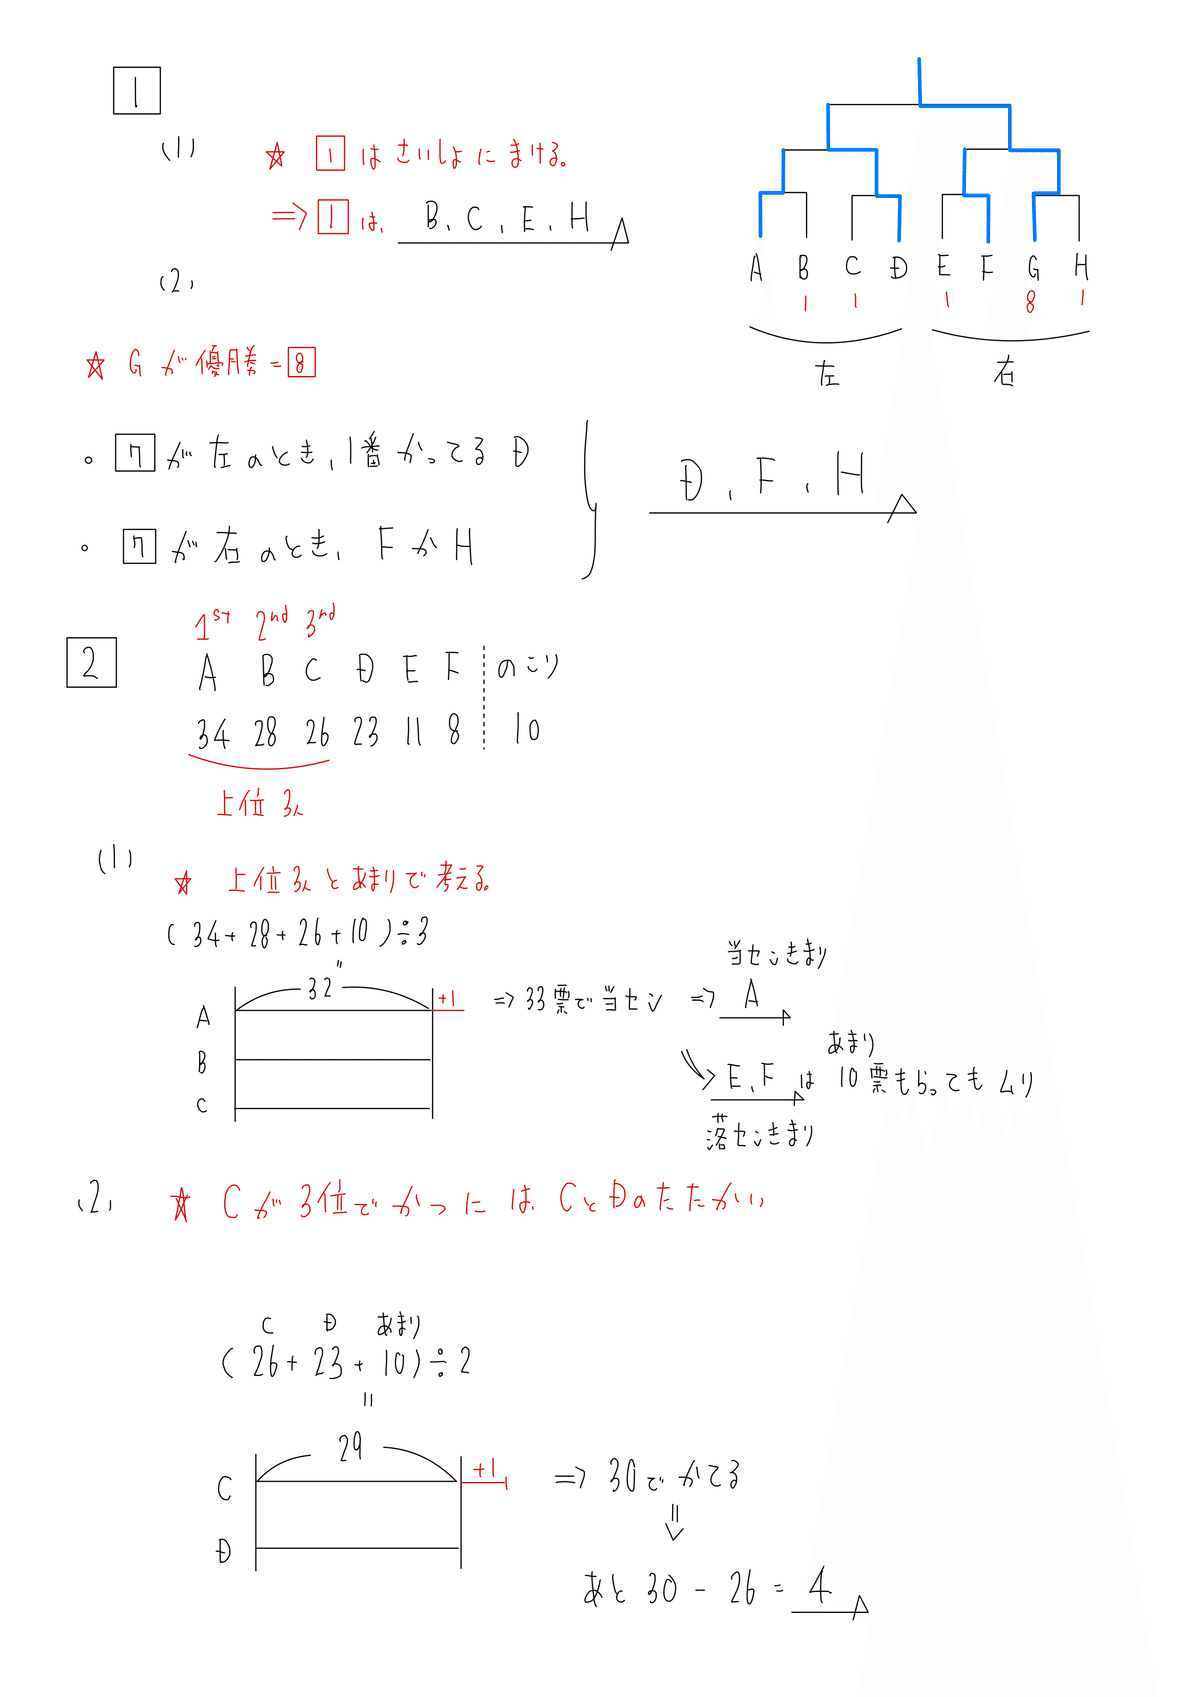 1
(1) ☆ 1 はさいしょにまける。
⇒ 1 は、 B, C, E, H
A B C D E F G H
1 1 1 8 1
左 右
(2)
☆ Gが優勝=8
。 7 が左のとき、1番かってるD
。 7 が右のとき、FかH
D, F, H
1st 2nd 3nd
2 A B C D E F のこり
34 28 26 23 11 8 10
上位3人
(1) ☆ 上位3人とあまりで考える。
(34+28+26+10)÷3
"
32
+1
A
B
C
⇒ 33票で当セン ⇒ A
当センきまり
E, F は 10票もらってもムリ
あまり
落センきまり
(2) ☆ Cが3位でかつには、CとDのたたかい
C D あまり
(26+23+10)÷2
=
29
+1
C
D
⇒ 30でかてる
⇓
あと 30 - 26 = 4